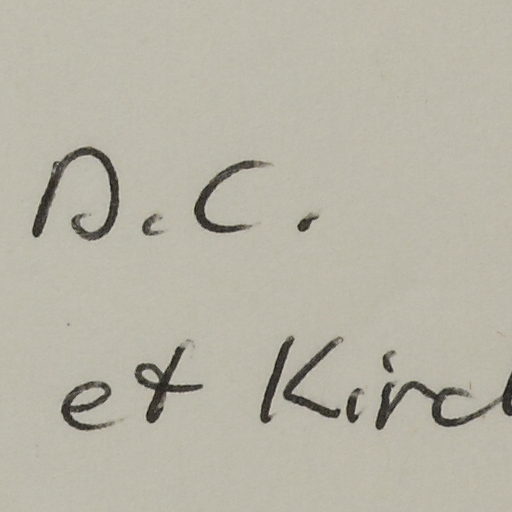 D.C.
et Kircl